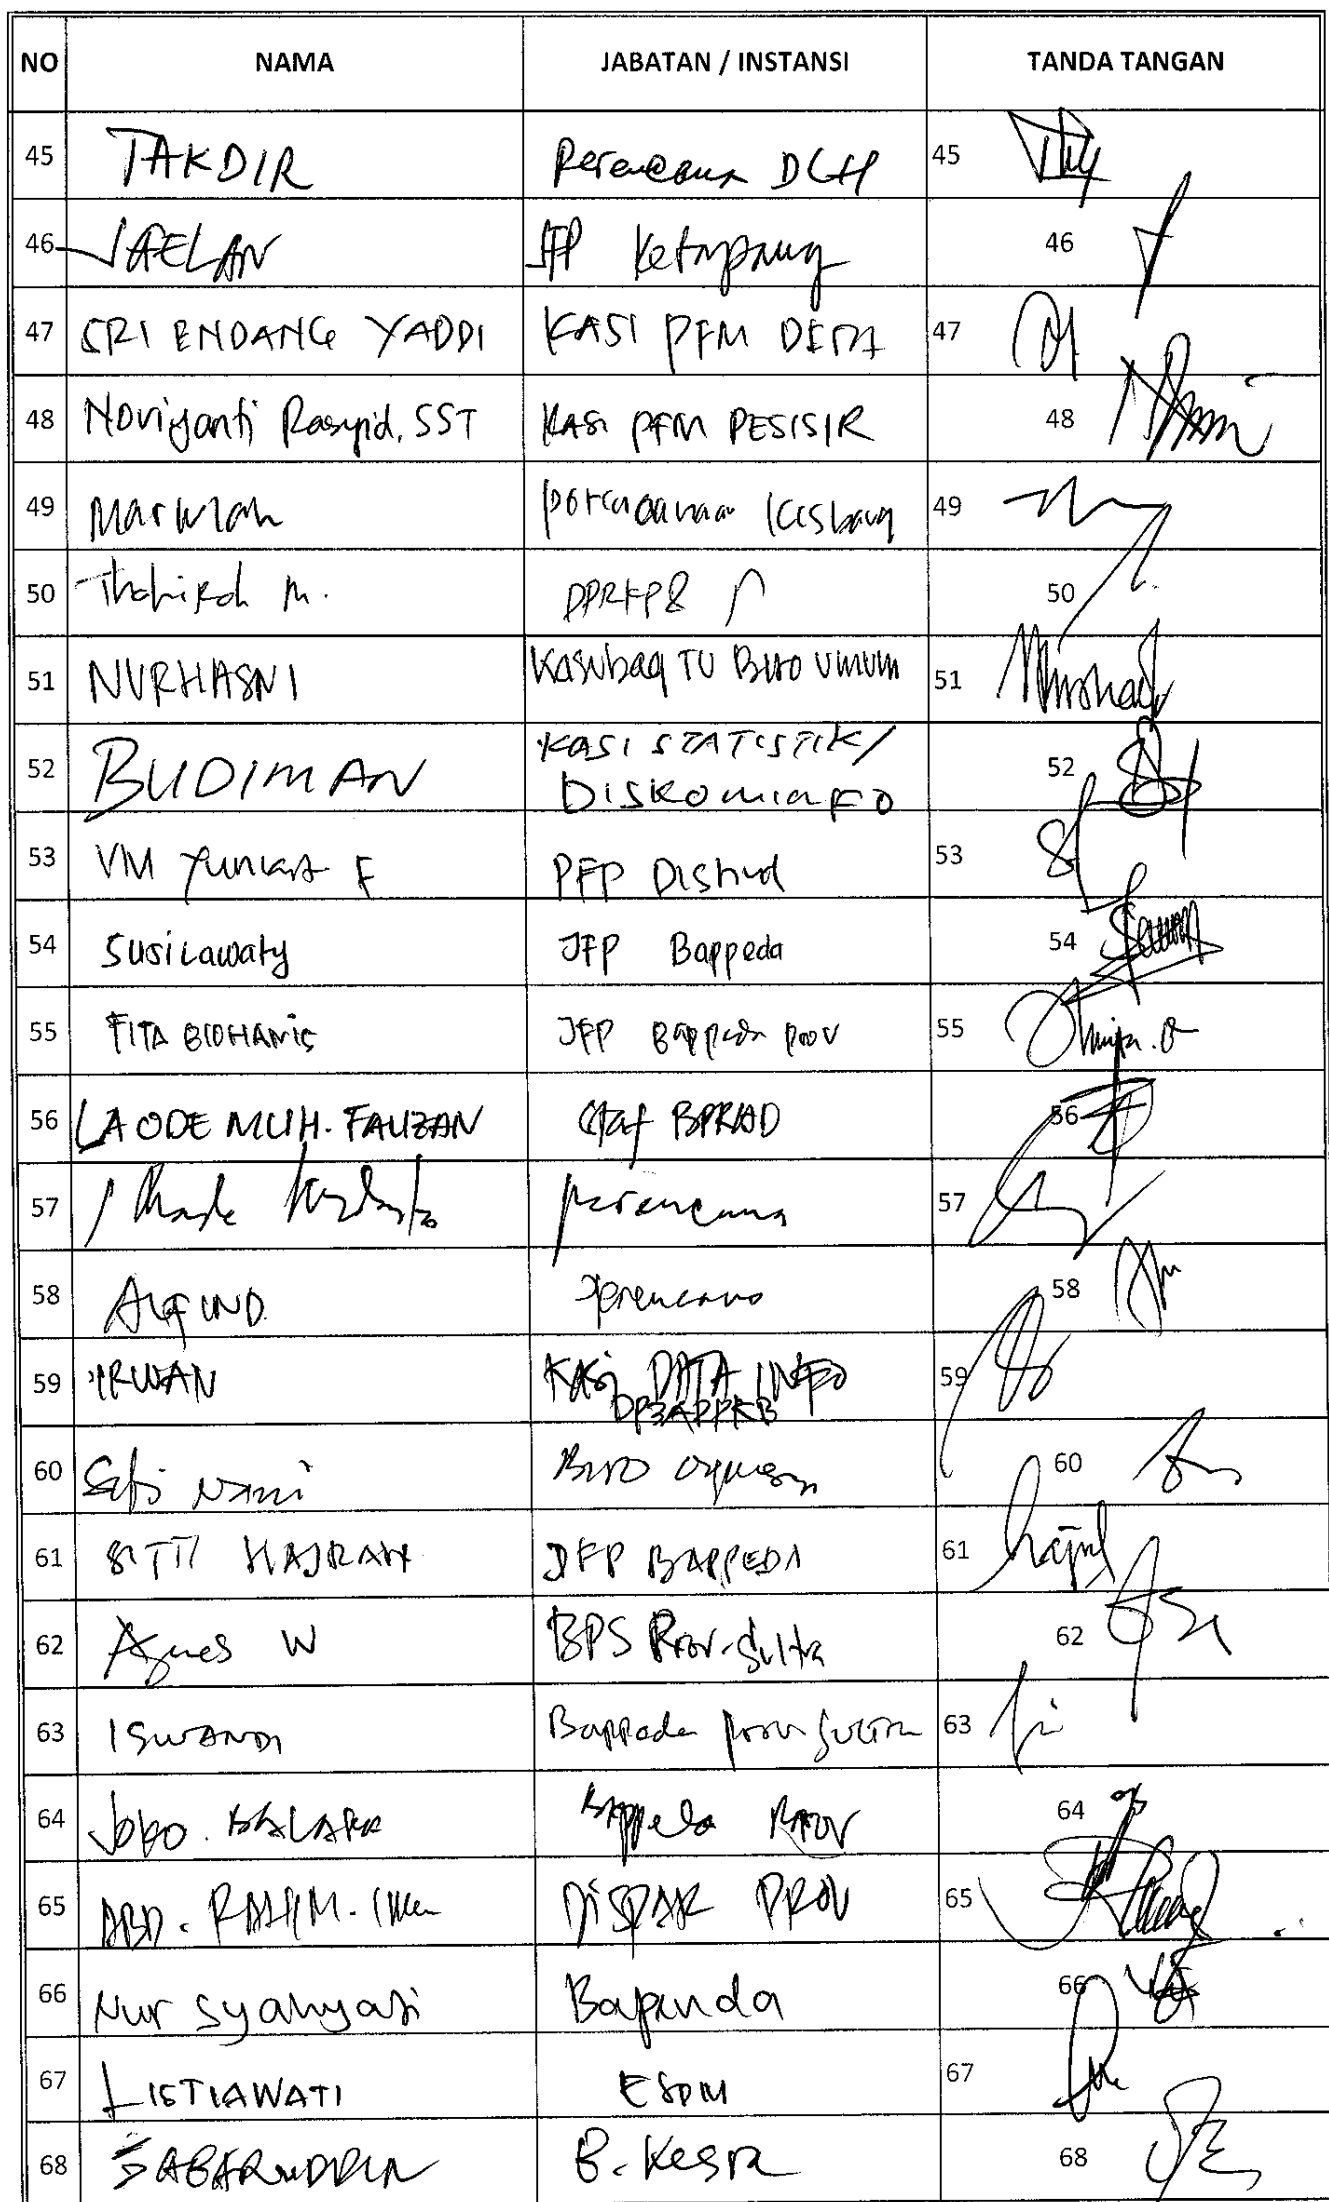 NO NAMA JABATAN / INSTANSI TANDA TANGAN
45 TAKDIR Perencana DLH 45
46 JAELAN JFP Ketapang 46
47 SRI ENDANG YADDI KASI PFM 47
48 Noviyanti Rasyid, SST KASI PFM PESISIR 48
49 perencanaan Kesbang 49
50 M. 50
51 NURHASNI Kasubag TU Biro Umum 51
52 BUDIMAN KASI STATISTIK/
DISKOMINFO 52
53 VM F PFP 53
54 Susilawaty JFP Bappeda 54
55 FITA JFP Bappeda prov 55
56 LA ODE MUH. FAUZAN Staf 56
57 I Made perencana 57
58 perencana 58
59 IRWAN KASI DATA INFO
DP3APPKB 59
60 Biro 60
61 SITTI HAJRAH JFP BAPPEDA 61
62 Agnes W BPS Prov. Sultra 62
63 ISWANDI Bappeda prov sultra 63
64 Bappeda PROV 64
65 ABD. RAHIM. DISPAR PROV 65
66 Nur Bapenda 66
67 LISTIAWATI ESDM 67
68 SABARUDDIN B. Kesra 68